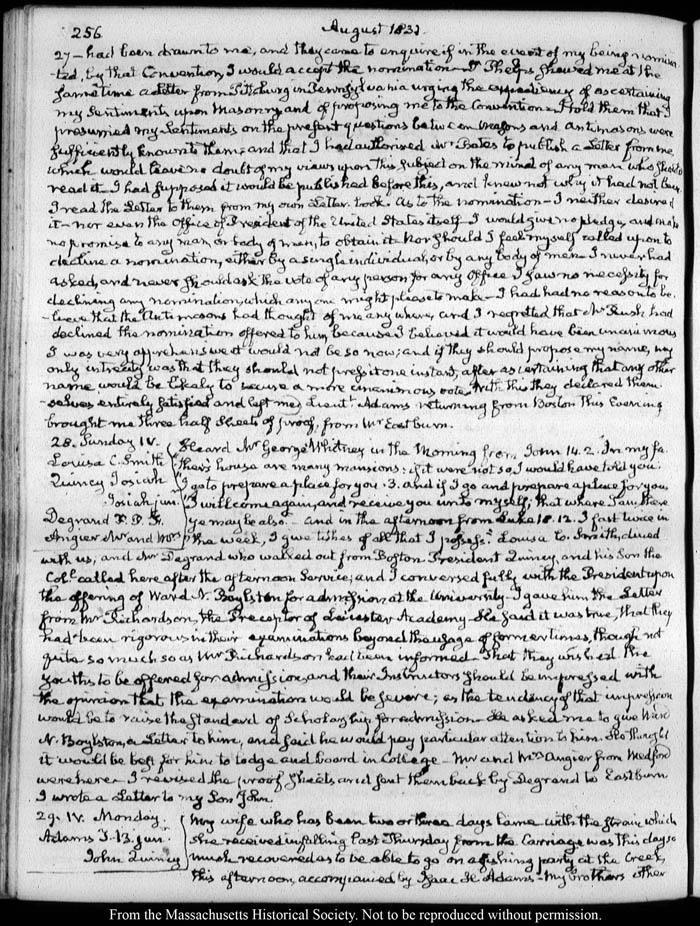 256
August 1831.
27 – had been drawn to me, and they came to enquire if in the event of my being nomina-
ted, by that Convention, I would accept the nomination – Dr Phelps showed me at the
same time a Letter from Pittsburg in Pennsylvania urging the expediency of ascertaining
my Sentiments upon Masonry, and of proposing me to the Convention – I told them that I
presumed my Sentiments on the present questions between Masons and antimasons were
sufficiently known to them; and that I had authorised Mr Bates to publish a Letter from me
which would leave no doubt of my views upon this subject on the mind of any man who should
read it – I had supposed it would be published before this, and knew not why it had not been
I read the Letter to them from my own Letter book. As to the nomination – I neither desired
it – nor even the Office of President of the United States itself – I would give no pledge, and make
no promise to any man, or body of men, to obtain it. Nor should I feel myself called upon to
decline a nomination, either by a single individual, or by any body of men – I never had
asked, and never should ask the vote of any person for any Office – I saw no necessity for
declining any nomination, which any one might please to make – I had had no reason to be-
lieve that the Anti masons had thought of me any where, and I regretted that Mr Rush, had
declined the nomination offered to him, because I believed it would have been unanimous
I was very apprehensive it would not be so now; and if they should propose my name, my
only intreaty was that they should not press it one instant, after ascertaining that any other
name would be likely to secure a more unanimous vote. With this they declared them-
selves entirely satisfied and left me. Lieut. Adams returning from Boston this Evening
brought me three half sheets of proof, from Mr Eastburn.
28. Sunday IV.
Louisa C. Smith
Quincy Josiah
Josiah jun.
Degrand P. P. F.
Angier Mr and Mrs
Heard Mr George Whitney in the Morning from John 14. 2. In my fa-
ther's house are many mansions: if it were not so, I would have told you.
I go to prepare a place for you. 3. and if I go and prepare a place for you
I will come again, and receive you unto myself; that where I am there
ye may be also. – and in the afternoon from Luke 18. 12. I fast twice in
the week, I give tithes of all that I possess. Louisa C. Smith, dined
with us; and Mr Degrand who walked out from Boston. President Quincy, and his Son the
Coll. called here after the afternoon Service; and I conversed fully with the President upon
the offering of Ward N. Boylston for admission at the University. I gave him the Letter
from Mr Richardson, the Preceptor of Leicester Academy – He said it was true, that they
had been rigorous in their examinations beyond the usage of former times, though not
quite so much so as Mr Richardson had been informed – That they wished the
youths to be offered for admission, and their Instructors should be impressed with
the opinion that the examination would be severe; as the tendency of that impression
would be to raise the standard of Scholarship for admission – He asked me to give Ward
N. Boylston, a Letter to him, and said he would pay particular attention to him. He thought
it would be best for him to lodge and board in College – Mr and Mrs Angier from Medford
were here – I revised the proof sheets and sent them back by Degrand to Eastburn
I wrote a Letter to my Son John.
29. IV. Monday.
Adams I. H. jun.
John Quincy
My wife who has been two or three days lame with the strain which
she received in falling last Thursday from the Carriage was this day so
much recovered as to be able to go on a fishing party at the Creek,
this afternoon, accompanied by Isaac H. Adams – My brothers other
From the Massachusetts Historical Society. Not to be reproduced without permission.